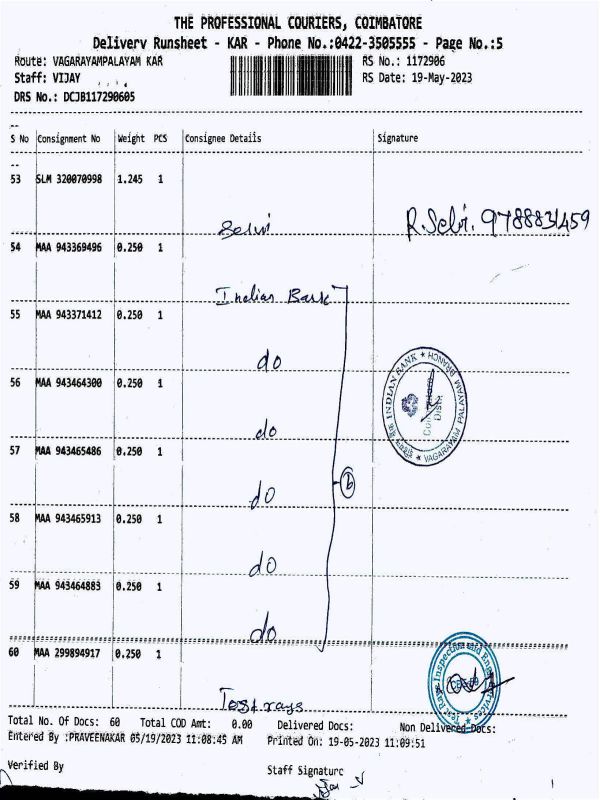 THE PROFESSIONAL COURIERS, COIMBATORE
Delivery Runsheet - KAR - Phone No.:0422-3505555 - Page No.:5
Route: VAGARAYAMPALAYAM KAR RS No.: 1172906
Staff: VIJAY RS Date: 19-May-2023
DRS No.: DCJB117290605
S No Consignment No Weight PCS Consignee Details Signature
53 SLM 320070998 1.245 1
Selvi R.Selvi. 9788831459
54 MAA 943369496 0.250 1
Indian Bank
55 MAA 943371412 0.250 1
do
INDIAN BANK ★ VAGARAYAM PALAYAM BRANCH ★
56 MAA 943464300 0.250 1
do
57 MAA 943465486 0.250 1
do
6
58 MAA 943465913 0.250 1
do
59 MAA 943464883 0.250 1
do
60 MAA 299894917 0.250 1
Test rays
Test Rays Inspection and Engg Services
Total No. Of Docs: 60 Total COD Amt: 0.00 Delivered Docs: Non Delivered Docs:
Entered By :PRAVEENAKAR 05/19/2023 11:08:45 AM Printed On: 19-05-2023 11:09:51
Verified By Staff Signature